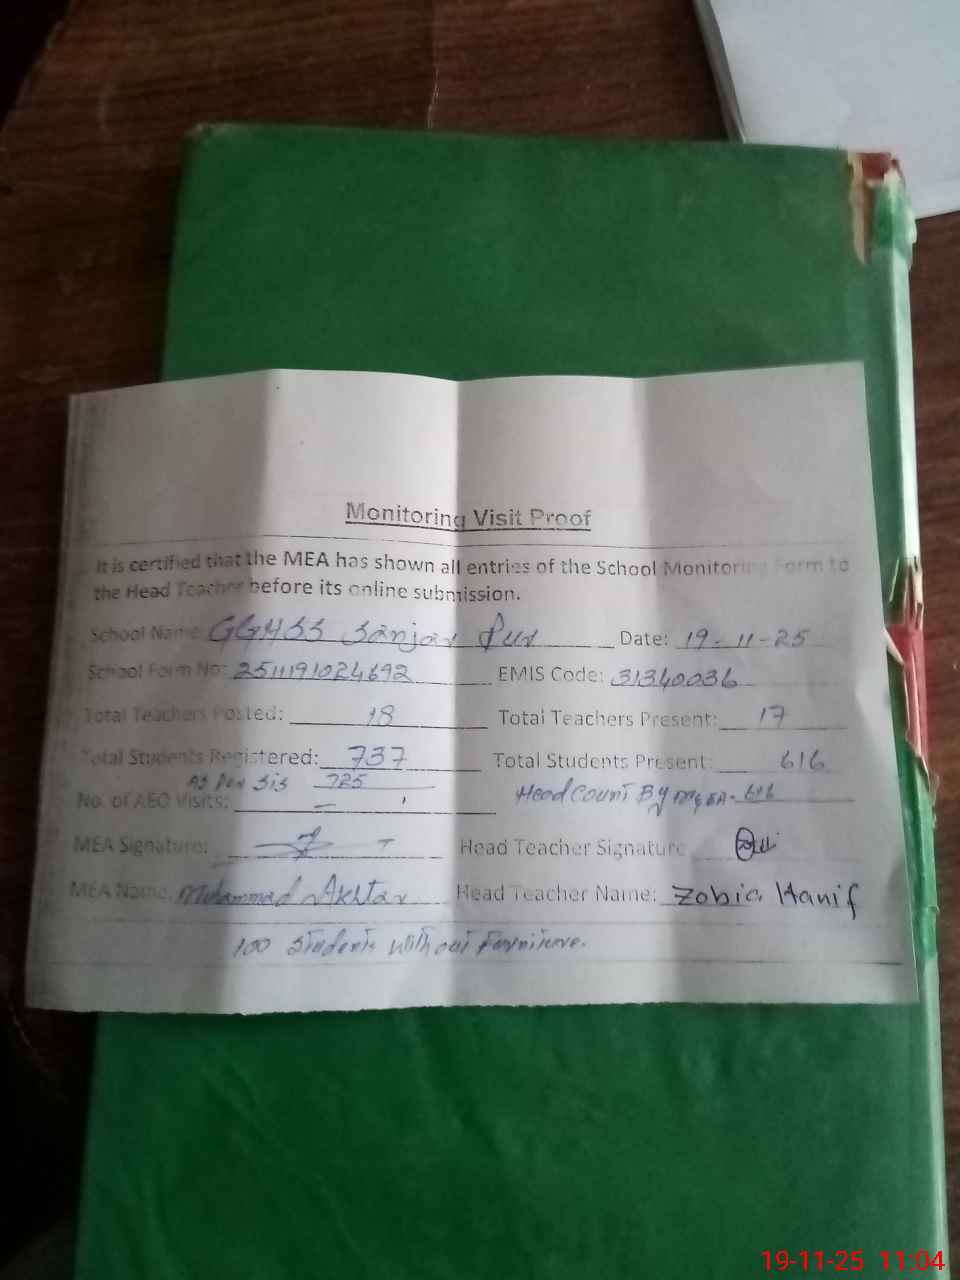 Monitoring Visit Proof
It is certified that the MEA has shown all entries of the School Monitoring Form to
the Head Teacher before its online submission.
School Name: GGHSS Sanjar Pur Date: 19-11-25
School Form No: 2511191024692 EMIS Code: 31340036
Total Teachers Posted: 18 Total Teachers Present: 17
Total Students Registered: 737 Total Students Present: 616
As Per Sis 725
No. of AEO Visits: — Head Count By - 616
MEA Signature: Head Teacher Signature
MEA Name: Muhammad Akhtar Head Teacher Name: Zobia Hanif
100 Students without Furniture.
19-11-25 11:04